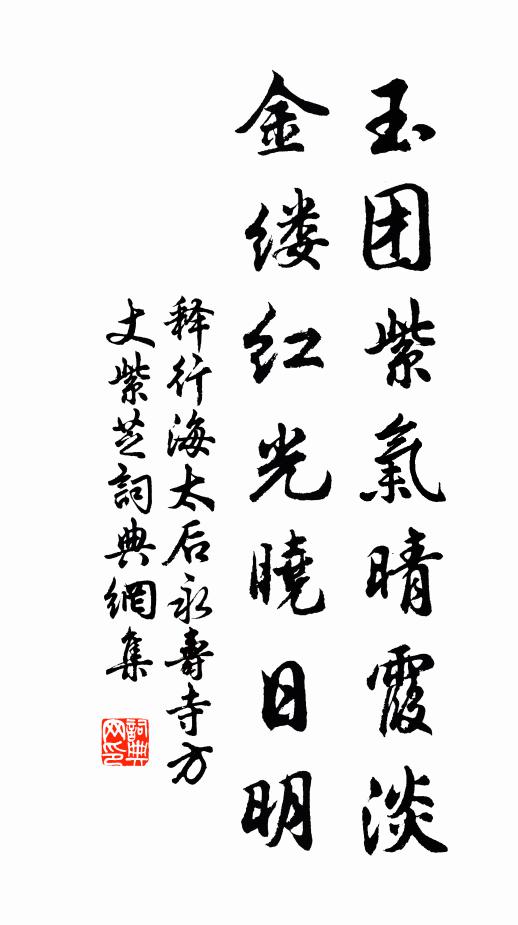 玉团紫氣晴霞淡
金缕红光曉日明
释行海太后永壽寺方
丈紫芝詞典網集
詞典
网印